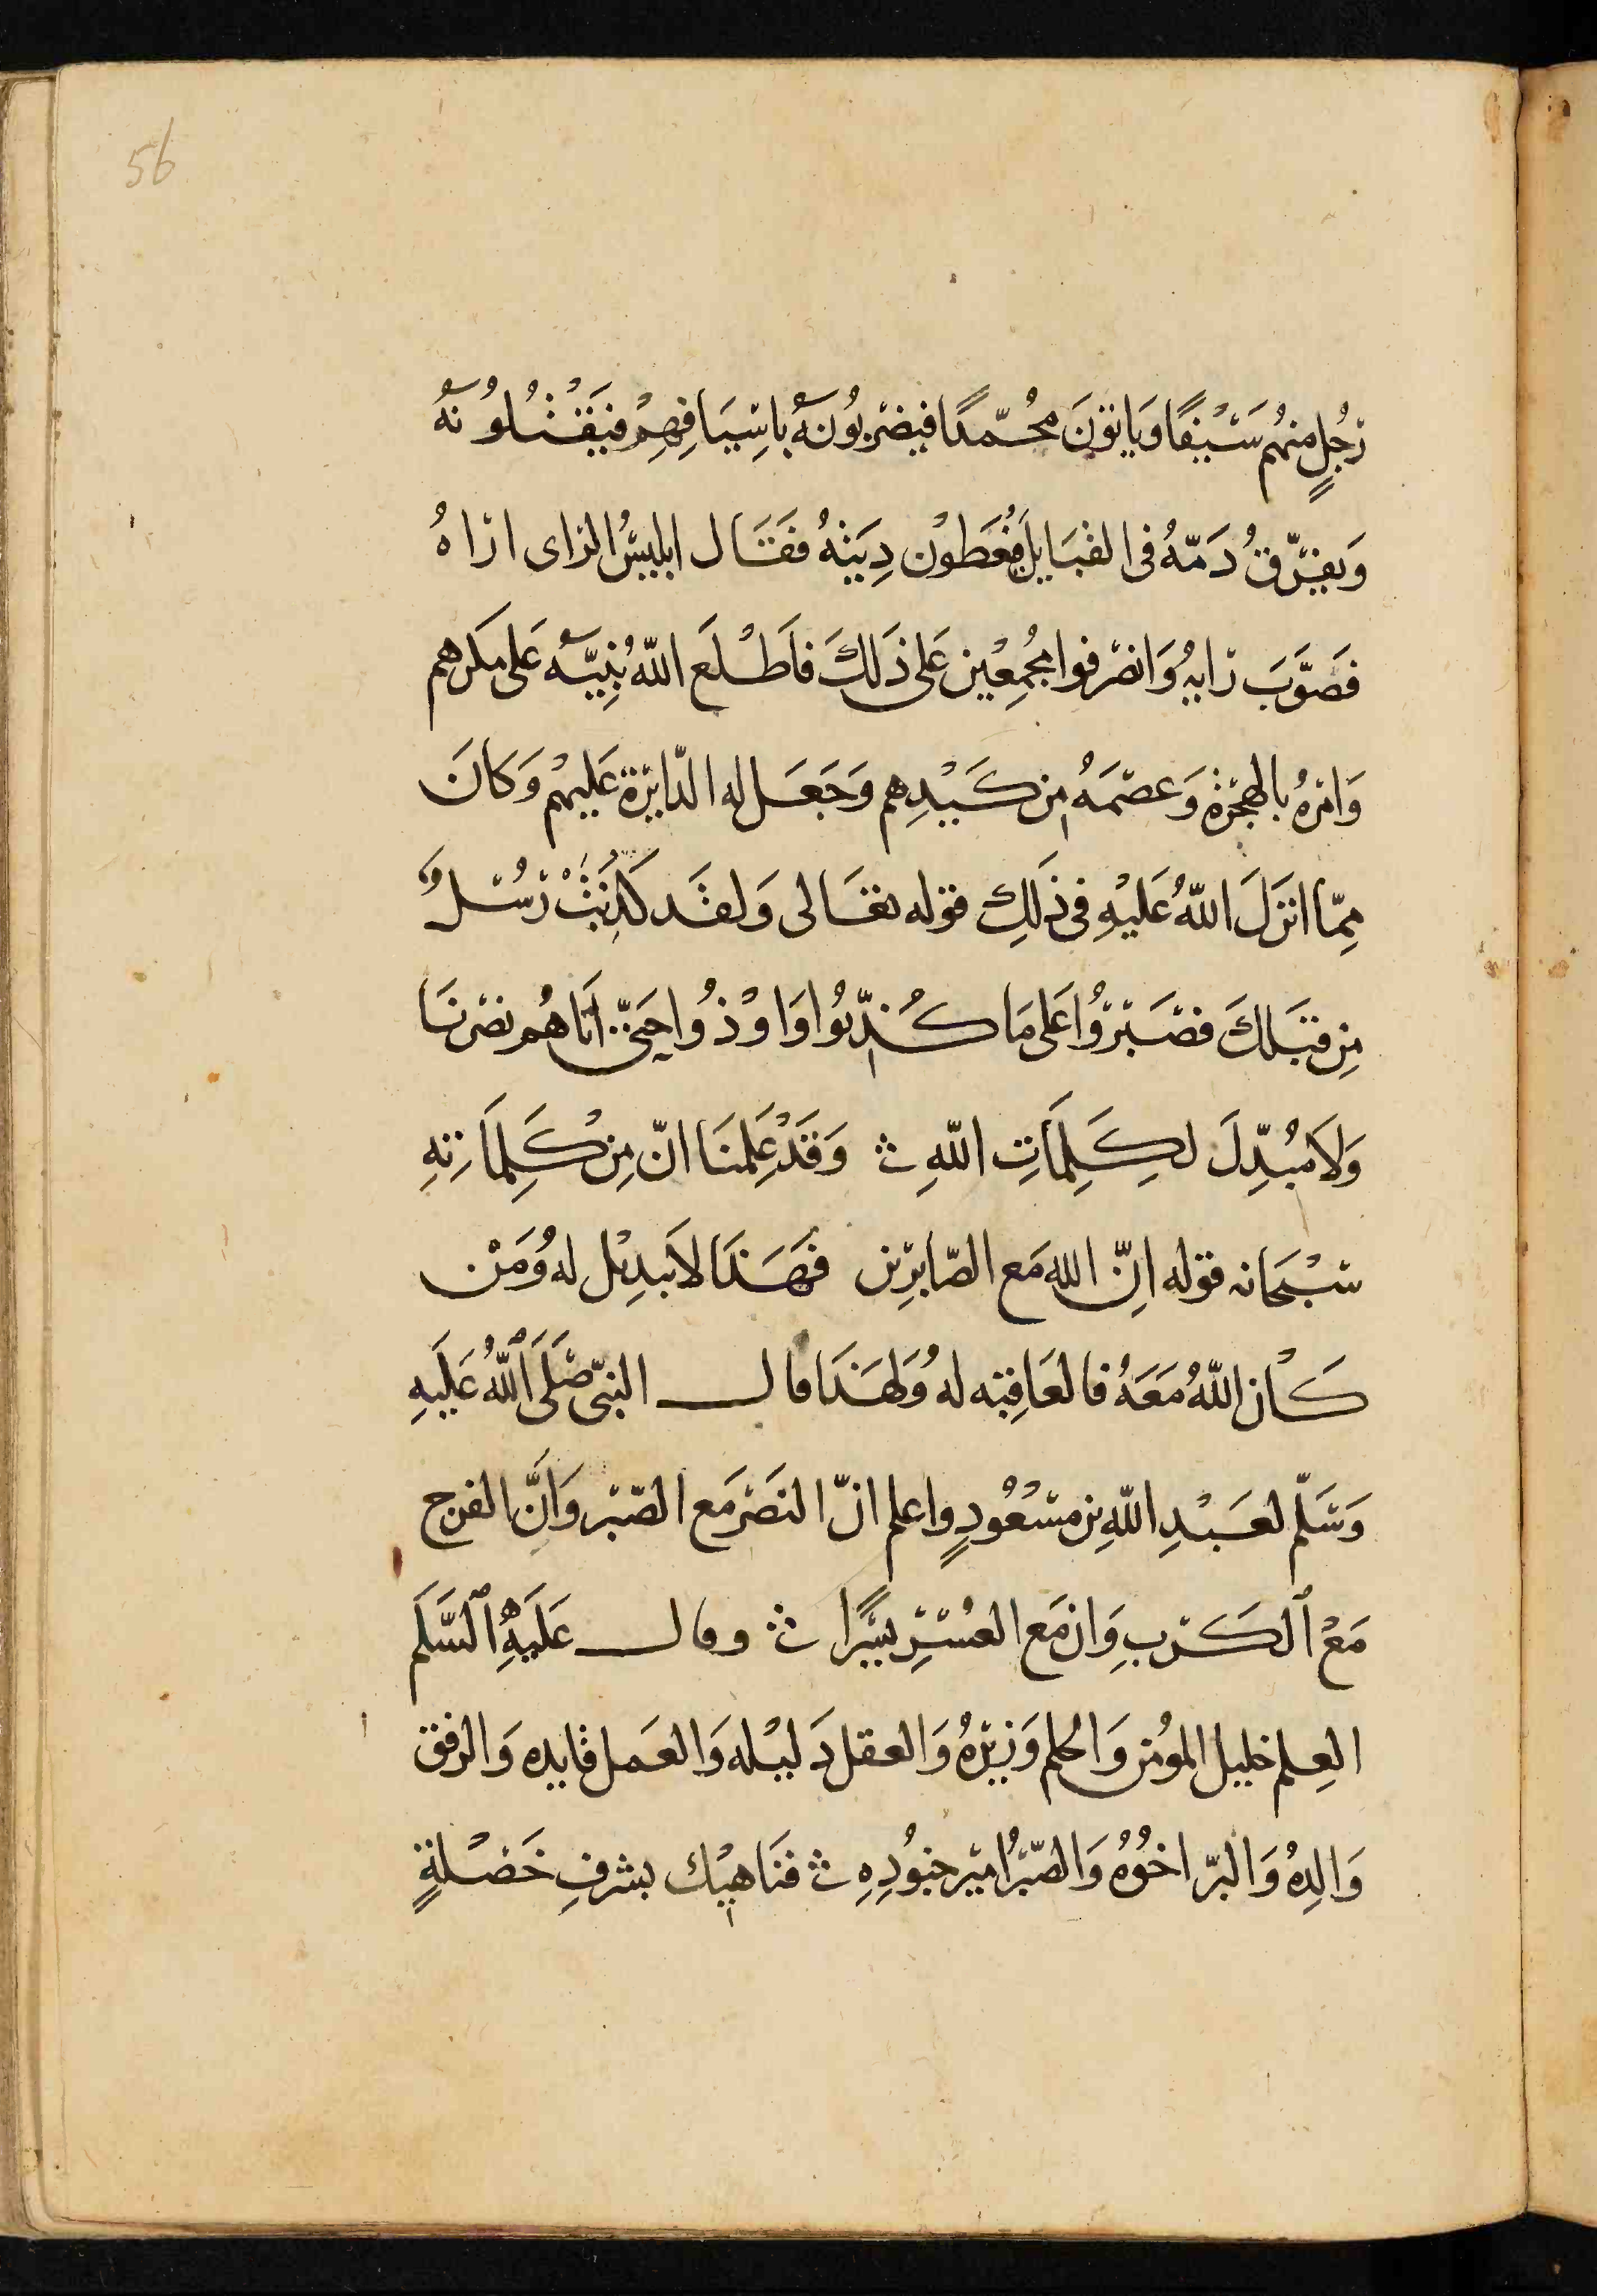 56
رَجُلٍ منهُم سَيْفًا وَياتونَ محُمّدًا فيضربُونَهُ باسِيَافِهِمْ فيَقْتُلُونَهُ
وَيفترّقُ دَمّهُ فى القبَايل فيُعَطون دِيَتهُ فقَال ابليسُ الراى اراهُ
فصَوَّبَ رايهُ وَانصرفوا مجُمِعْين عَلى ذَلكَ فاَطْلَع اللّهُ نبِيّهُ عَلى مكرهم
وَامرهُ بالهجرَةِ وَعصمَهُ مِن كَيْدِهم وَجَعَل له الدّايرَةَ عَليهْم وَكانَ
مِمّا انزلَ اللّهُ عَليْهِ فى ذَلِكَ قوله تعَالى وَلقَد كذِبَتْ رُسُلٌ
مِن قبَلكَ فصَبَرُوا عَلى مَا كُذّبُوا وَاوْذُوا حَتّى اَتاهُم نصْرنَا
وَلاَ مُبدّلَ لكَلِمَاتِ اللّهِ ث وَقَدْ عَلِمنَا انّ مِن كَلِمَاتِهِ
سْبحَانه قوله اِنّ الله مَع الصّابرِين فهَذَا لاَ تبدِيْل لهُ وَمَن
كَان اللّهُ مَعَهُ فالعَاقِبَه لهُ وَلهَذَا قال النبىّ صَلَى اَللّهُ عَليَهِ
وَسَلّم لعَبْدِ اللّهِ بن مسْعُودٍ واعلم انّ النَصْرَ مَع الصّبر وَانَّ الفرج
مَعْ اَلكَربِ وَان مَع العُسْرِ يسْرًا ث وقال عَليَهِ اَلسَّلَم
العِلم خليل المومُن وَالحلم وَزيرهُ وَالعقل دَليْله وَالعَمل قايده وَالرفق
وَالِدهُ وَالبرّ اخُوهُ وَالصّبرُ اميَر جنُودِهِ ث فنَاهيْك بشرفِ خَصْلةٍ